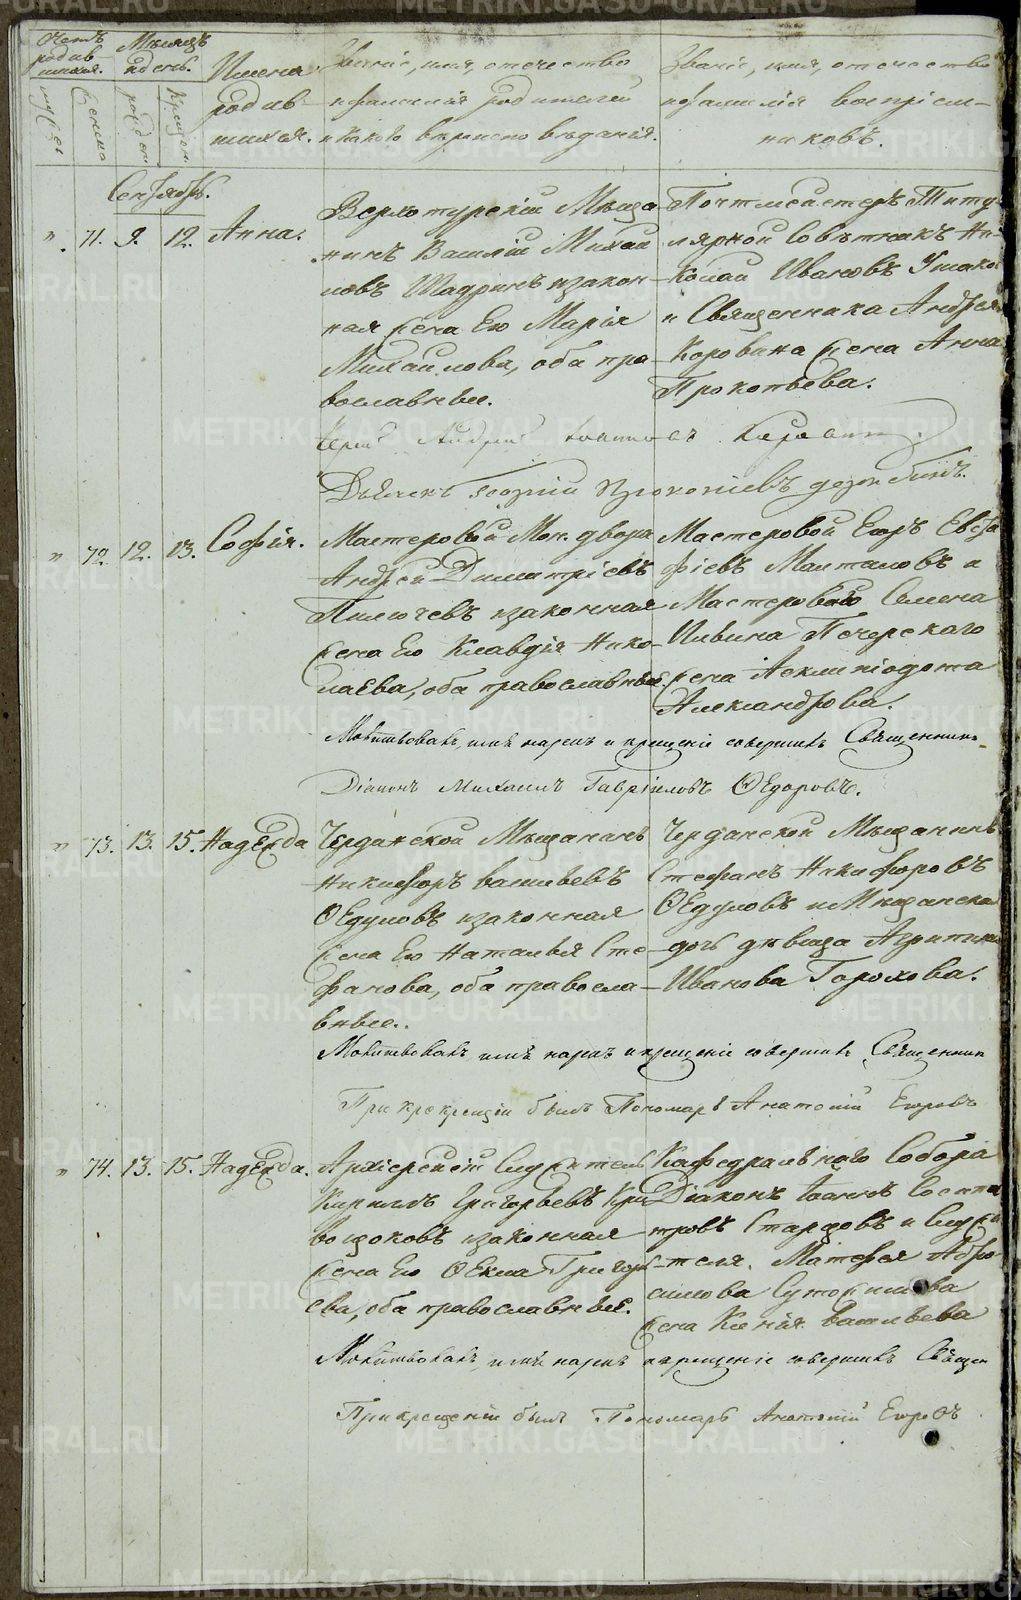 Счетъ родив шихся.
Мѣсяцъ и день.
Имена родив- шихся.
Званіе, имя, отечество
и фамилія родителей
и какого вѣроисповѣданія.
Званіе, имя, отечество
и фамилія воспріем-
никовъ.
мужес
женска
рожден.
крещен.
Сентябрь.
" 71. 9. 12. Анна.
Верхотурскій Мѣща-
нинъ Василій Михай
ловъ Шадринъ и закон-
ная жена Его Марія
Михайлова, оба пра-
вославные.
Почтмейстеръ Титу-
лярной Совѣтникъ Ни-
колай Ивановъ Ушако
и Священника Андрея
Коровина жена Анна
Прокопьева.
Іерей Андрей Коровин
Дьячекъ Георгій Прокопіевъ
" 72. 12. 13. Софія.
Мастеровой Мон. двора
Андрей Димитріевъ
Пилючевъ и законная
жена Его Клавдія Нико-
лаева, оба православные.
Мастеровой Егоръ Евста
фіевъ Манталовъ и
Мастероваго Семена
Ильина Печерскаго
жена Асклипіодота
Александрова.
Молитвовалъ, имя нарекъ и крещеніе совершилъ Священник
Діаконъ Михаилъ Гавріиловъ Ѳедоровъ.
" 73. 13. 15. Надежда
Чердынской Мѣщанинъ
Никифоръ Васильевъ
Ѳедуловъ и законная
жена Его Наталья Сте-
фанова, оба правосла-
вные.
Чердынской Мѣщанинъ
Стефанъ Никифоровъ
Ѳедуловъ и Мѣщанска
дочь дѣвица Агрипин
Иванова Горохова.
Молитвовалъ имя нарекъ и крещеніе совершилъ Священник
При крещеніи былъ Пономарь Анатолій Егоровъ
" 74. 13. 15. Надежда.
Архіерейскій Служитель
Кириллъ Григорьевъ Кри
вощоковъ и законная
жена Его Ѳекла Григорь
ева, оба православные.
Кафедральнаго Собора
Діаконъ Іоаннъ Сосипа
тровъ Старцовъ и Служи
теля Матфея Абро-
симова
жена Ксенія Васильева
Молитвовалъ, имя нарекъ и крещеніе совершилъ Свящеи
При крещеніи былъ Пономарь Анатолій Егоровъ
METRIKI.GASO-URAL.RU